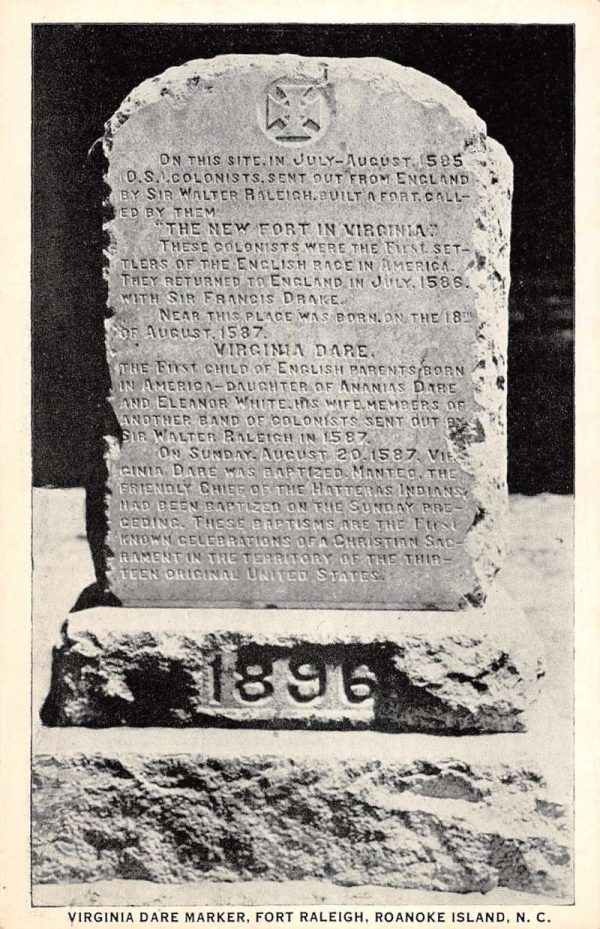 ON THIS SITE, IN JULY-AUGUST, 1585
(O.S.), COLONISTS, SENT OUT FROM ENGLAND
BY SIR WALTER RALEIGH, BUILT A FORT, CALL-
ED BY THEM
"THE NEW FORT IN VIRGINIA."
THESE COLONISTS WERE THE FIRST SET-
TLERS OF THE ENGLISH RACE IN AMERICA.
THEY RETURNED TO ENGLAND IN JULY, 1586,
WITH SIR FRANCIS DRAKE.
NEAR THIS PLACE WAS BORN, ON THE 18TH
OF AUGUST, 1587,
VIRGINIA DARE,
THE FIRST CHILD OF ENGLISH PARENTS BORN
IN AMERICA—DAUGHTER OF ANANIAS DARE
AND ELEANOR WHITE, HIS WIFE, MEMBERS OF
ANOTHER BAND OF COLONISTS SENT OUT BY
SIR WALTER RALEIGH IN 1587.
ON SUNDAY, AUGUST 20, 1587, VIR-
GINIA DARE WAS BAPTIZED. MANTEO, THE
FRIENDLY CHIEF OF THE HATTERAS INDIANS,
HAD BEEN BAPTIZED ON THE SUNDAY PRE-
CEDING. THESE BAPTISMS ARE THE FIRST
KNOWN CELEBRATIONS OF A CHRISTIAN SAC-
RAMENT IN THE TERRITORY OF THE THIR-
TEEN ORIGINAL UNITED STATES.
1896
VIRGINIA DARE MARKER, FORT RALEIGH, ROANOKE ISLAND, N. C.